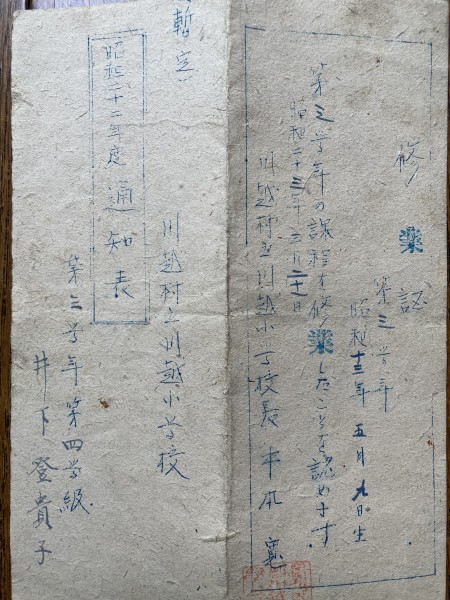 修業証
第三学年
昭和十三年五月九日生
第三学年の課程を修業したことを認めます
昭和二十三年三月二十日
川越村立川越小学校長
(暫定)
昭和二十二年度通知表
川越村立川越小学校
第三学年第四学級
井下登貴子